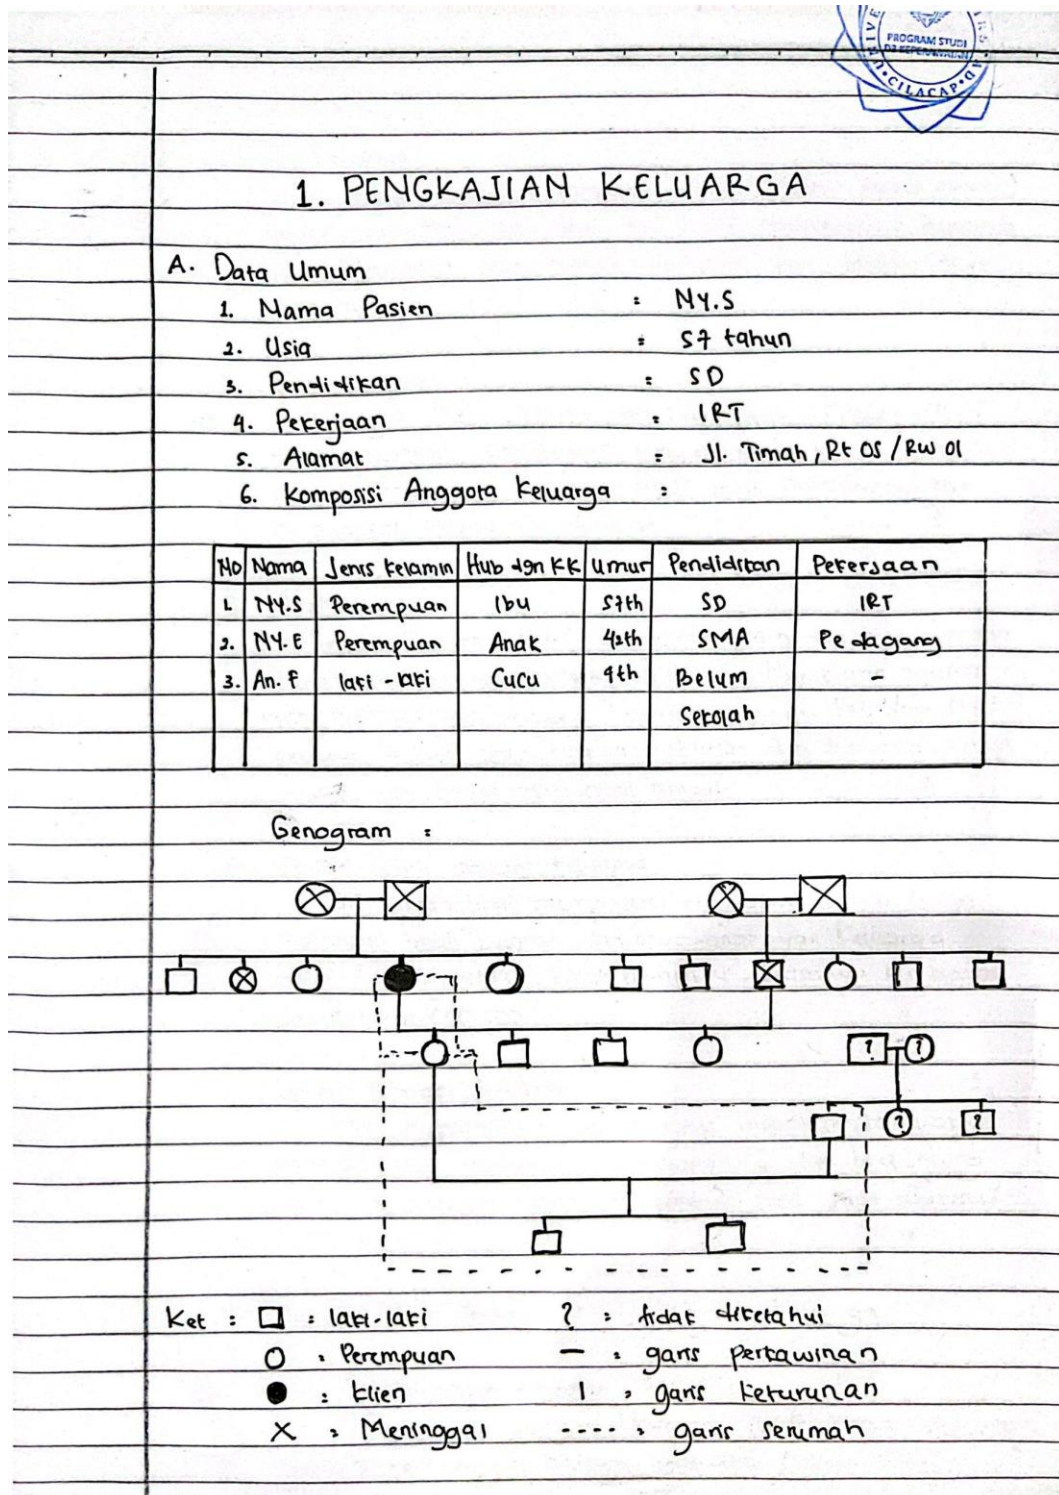 PROGRAM STUDI
D3 KEPERAWATAN
CILACAP
1. PENGKAJIAN KELUARGA
A. Data Umum
1. Nama Pasien : NY.S
2. Usia : 57 tahun
3. Pendidikan : SD
4. Pekerjaan : IRT
5. Alamat : Jl. Timah, Rt 05 / RW 01
6. Komposisi Anggota Keluarga :
No Nama Jenis Kelamin Hub dgn KK Umur Pendidikan Pekerjaan
1. NY.S Perempuan Ibu 57th SD IRT
2. NY.E Perempuan Anak 42th SMA Pedagang
3. An. F laki-laki Cucu 4th Belum -
Sekolah
Genogram :
? ?
? ?
Ket : : laki-laki ? : tidak diketahui
: Perempuan — : garis perkawinan
: klien | : garis keturunan
X : Meninggal ---- : garis serumah